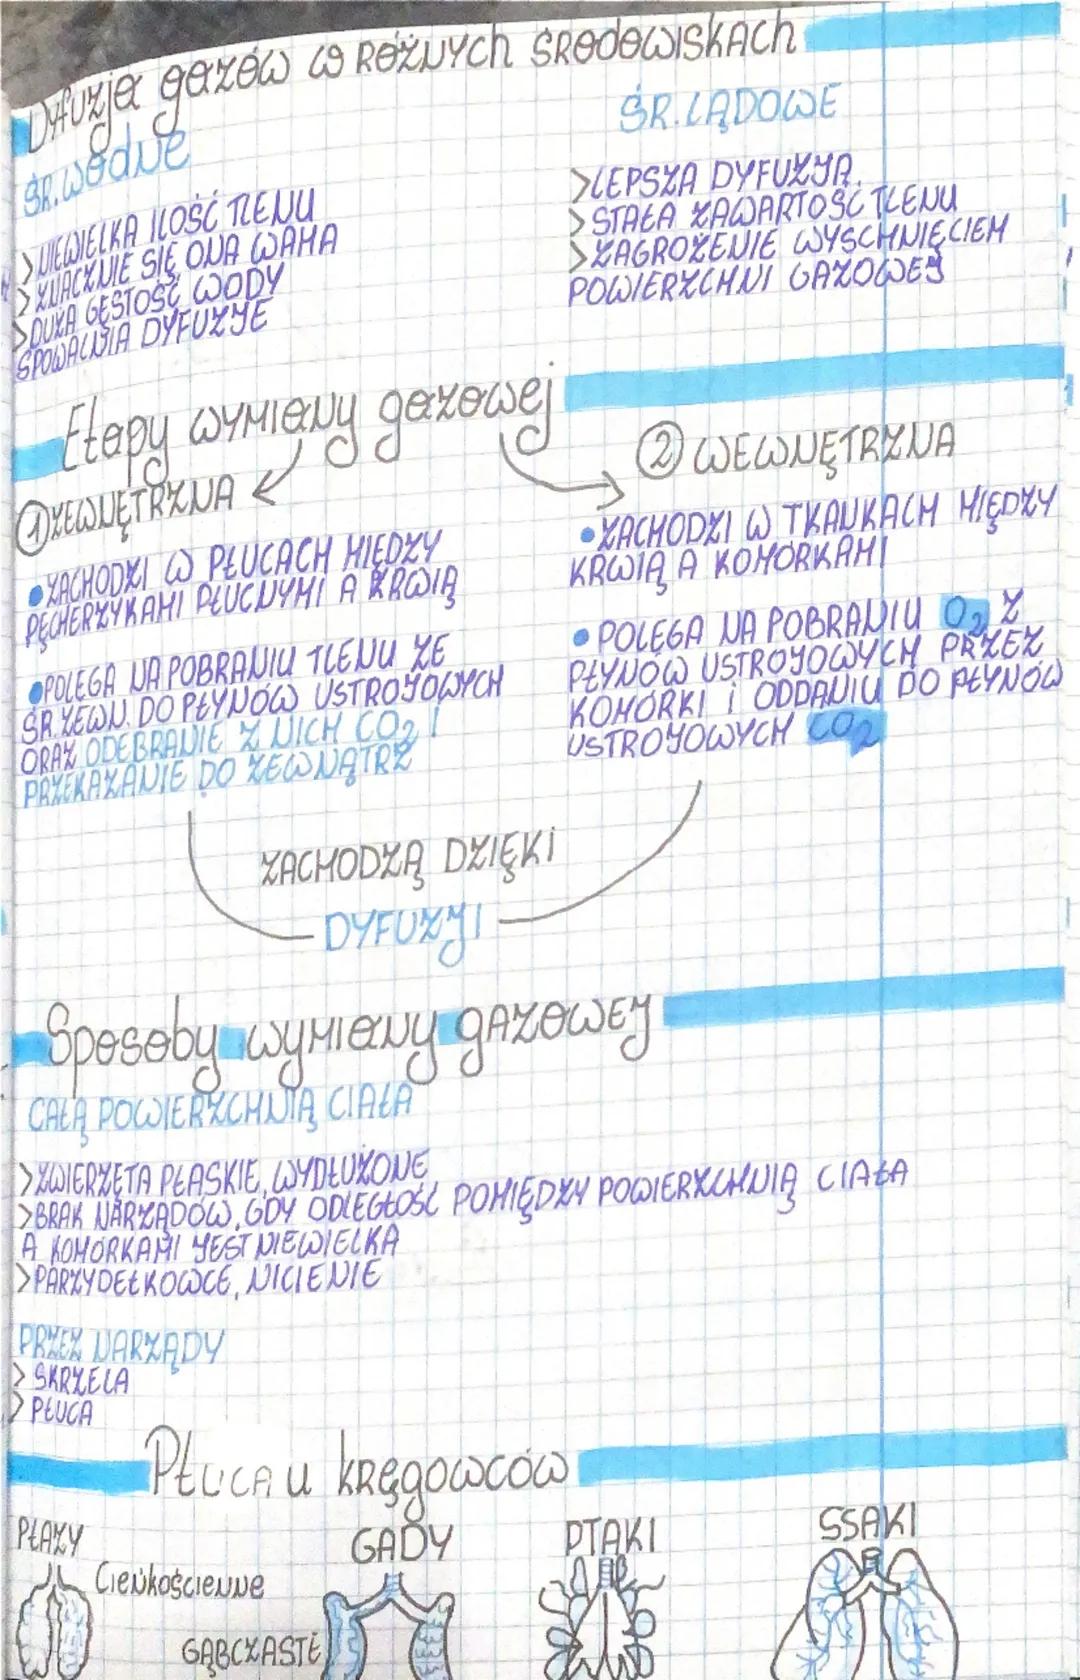 Dyfuzja gazów w RÓŻNYCh ŚRODOWISKACh
ŚR. wodne
> NIEWIELKA ILOŚĆ TLENU
> ZNACZNIE SIĘ ONA WAHA
> DUŻA GĘSTOŚĆ WODY
SPOWALNIA DYFUZJE
ŚR. LĄDOWE
> LEPSZA DYFUZJA.
> STAŁA ZAWARTOŚĆ TLENU
> ZAGROŻENIE WYSCHNIĘCIEM
POWIERZCHNI GAZOWEJ
Etapy wymiany gazowej
① ZEWNĘTRZNA
• ZACHODZI W PŁUCACH MIĘDZY
PĘCHERZYKAMI PŁUCNYMI A KRWIĄ
• POLEGA NA POBRANIU TLENU ZE
ŚR. ZEWN. DO PŁYNÓW USTROJOWYCH
ORAZ ODEBRANIE Z NICH CO₂ I
PRZEKAZANIE DO ZEWNĄTRZ
② WEWNĘTRZNA
• ZACHODZI W TKANKACH MIĘDZY
KRWIĄ A KOMÓRKAMI
• POLEGA NA POBRANIU O₂ Z
PŁYNÓW USTROJOWYCH PRZEZ
KOMÓRKI i ODDANIU DO PŁYNÓW
USTROJOWYCH CO₂
ZACHODZĄ DZIĘKI
DYFUZJI
Sposoby wymiany gazowej
CAŁĄ POWIERZCHNIĄ CIAŁA
> ZWIERZĘTA PŁASKIE, WYDŁUŻONE
> BRAK NARZĄDÓW, GDY ODLEGŁOŚĆ POMIĘDZY POWIERZCHNIĄ CIAŁA
A KOMÓRKAMI JEST NIEWIELKA
> PARZYDEŁKOWCE, NICIENIE
PRZEZ NARZĄDY
> SKRZELA
> PŁUCA
Płuca u kręgowców
PŁAZY
Cienkościenne
GADY
GĄBCZASTE
PTAKI
SSAKI